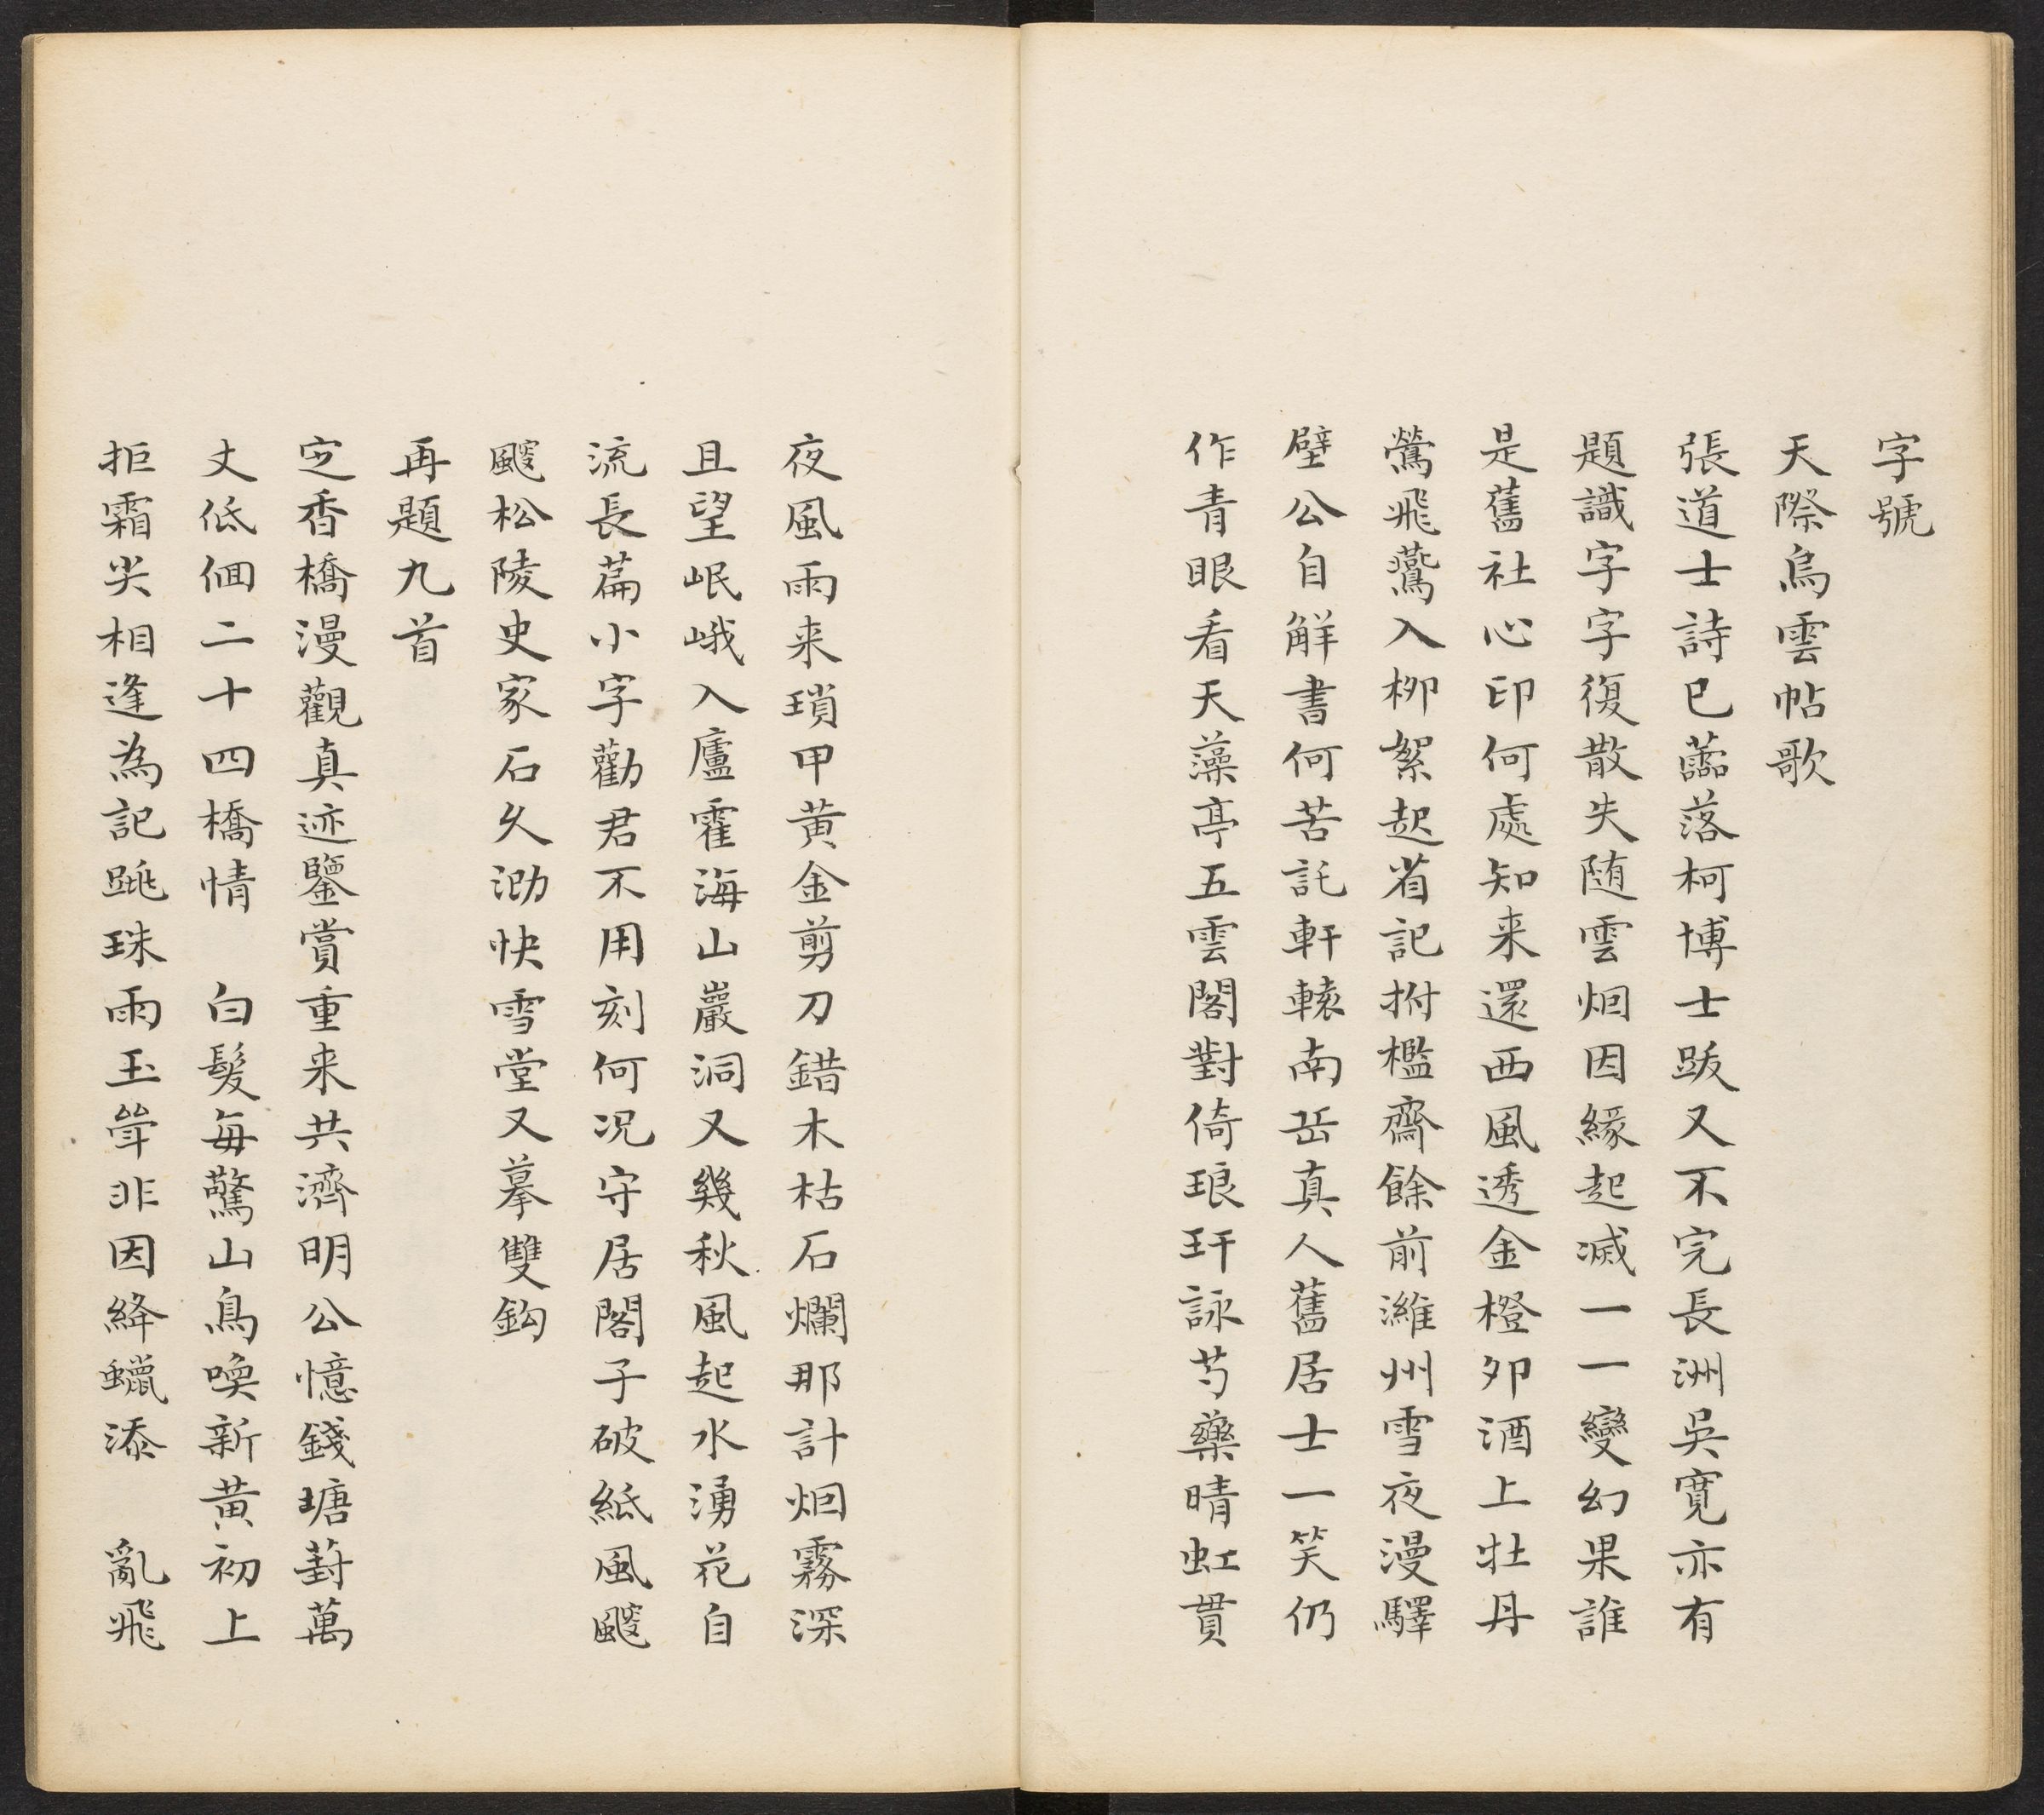 字號
天際烏雲帖歌
張道士詩已蘦落柯博士跋又不完長洲吳寬亦有
題識字字復散失随雲烟因緣起滅一一變幻果誰
是舊社心印何處知来還西風透金橙夘酒上牡丹
鶯飛鷰入柳絮起省記拊檻齋餘前濰州雪夜漫驛
壁公自解書何苦託軒轅南岳真人舊居士一笑仍
作青眼看天藻亭五雲閣對倚琅玕詠芍藥晴虹貫
夜風雨来瑣甲黄金剪刀錯木枯石爛那計烟霧深
且望岷峨入廬霍海山巖洞又幾秋風起水湧花自
流長篇小字勸君不用刻何况守居閣子破紙風颼
颼松陵史家石久泐快雪堂又摹雙鈎
再題九首
定香橋漫觀真迹鑒賞重来共濟明公憶錢塘葑萬
丈低佪二十四橋情　白髮每驚山鳥喚新黄初上
拒霜尖相逢為記跳珠雨玉聳非因絳蠟添　亂飛